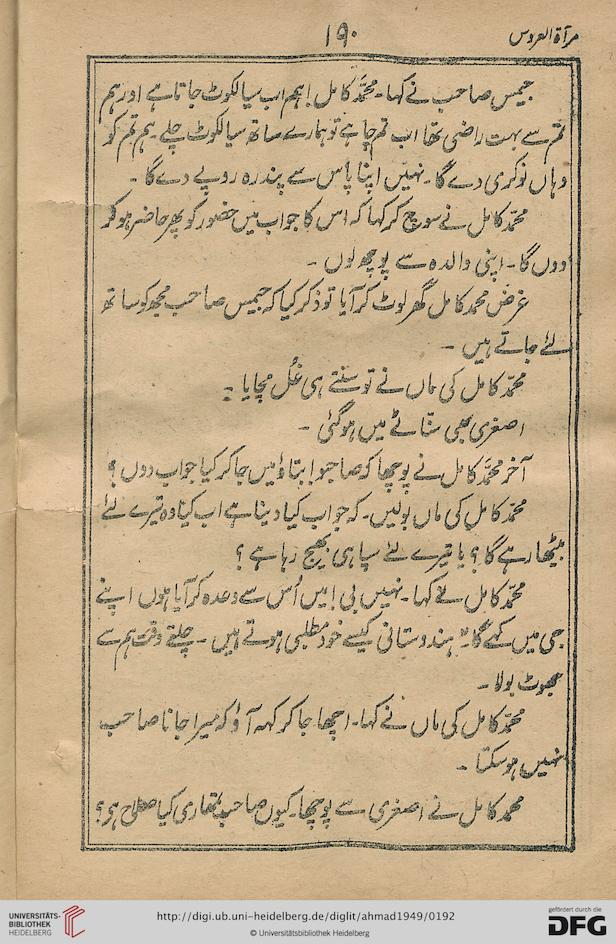 مرآۃ العروس
۱۹۰
جیمس صاحب نے کہا۔ محمّد کامل! ہم اب سیالکوٹ جاتا ہے اور ہم
تم سے بہت راضی تھا اب تم چاہے تو ہمارے ساتھ سیالکوٹ چلے۔ ہم تم کو
وہاں نوکری دے گا۔ نہیں اپنا پاس سے پندرہ روپے دے گا۔
محمّد کامل نے سوچ کر کہا کہ اس کا جواب میں حضور کو پھر حاضر ہو کر
دوں گا۔ اپنی والدہ سے پوچھ لوں۔
غرض محمد کامل گھر لوٹ کر آیا تو ذکر کیا کہ جیمس صاحب مجھ کو ساتھ
لئے جاتے ہیں۔
محمّد کامل کی ماں نے تو سنتے ہی غُل مچایا۔
اصغری بھی سنّاٹے میں ہو گئی۔
آخر محمّد کامل نے پوچھا کہ صاحبو! بتاؤ میں جا کر کیا جواب دوں؟
محمّد کامل کی ماں بولیں۔ کہ جواب کیا دینا ہے اب کیا وہ تیرے لئے
بیٹھا رہے گا؟ یا تیرے لئے سپاہی بھیج رہا ہے؟
محمّد کامل نے کہا۔ نہیں بی! میں اُس سے وعدہ کر آیا ہوں اپنے
جی میں کہے گا۔ ہندوستانی کیسے خود مطلبی ہوتے ہیں۔ چلتے وقت ہم سے
جھوٹ بولا۔
محمّد کامل کی ماں نے کہا۔ اچھا جا کر کہہ آؤ کہ میرا جانا صاحب
نہیں ہو سکتا۔
محمد کامل نے اصغری سے پوچھا۔ کیوں صاحب تمھاری کیا صلاح ہی؟
UNIVERSITÄTS-
BIBLIOTHEK
HEIDELBERG
http://digi.ub.uni-heidelberg.de/diglit/ahmad1949/0192
© Universitätsbibliothek Heidelberg
gefördert durch die
DFG